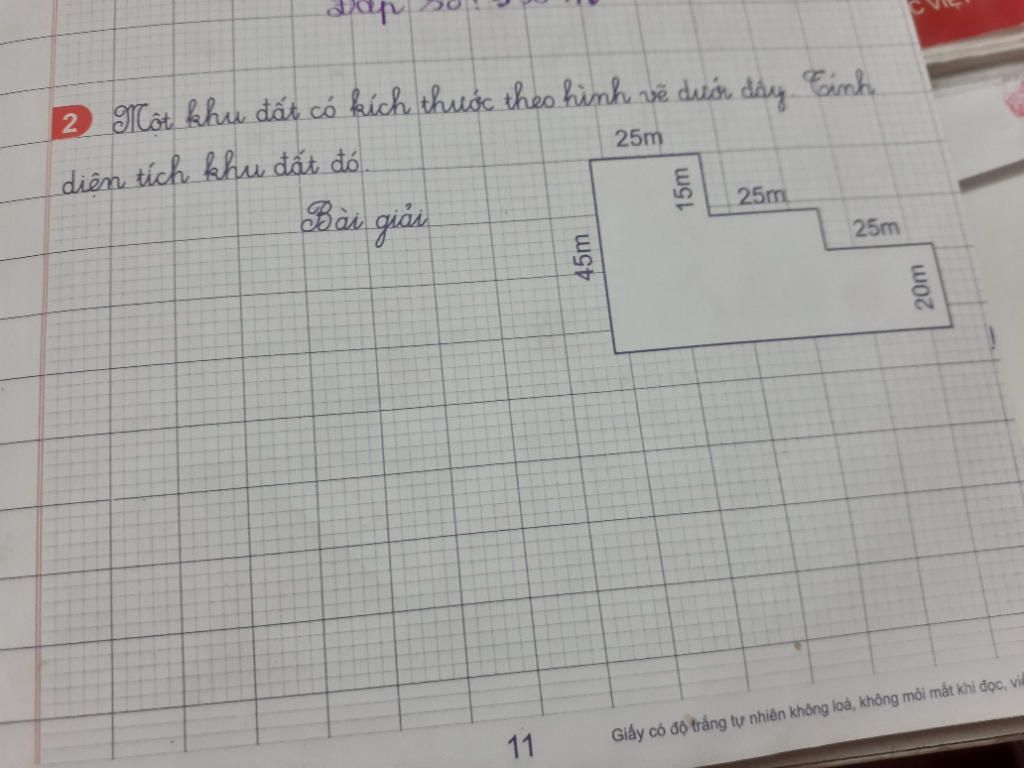 2 Một khu đất có kích thước theo hình vẽ dưới đây. Tính
diện tích khu đất đó.
Bài giải
25m
15m
25m
25m
45m
20m
11
Giấy có độ trắng tự nhiên không loá, không mỏi mắt khi đọc,